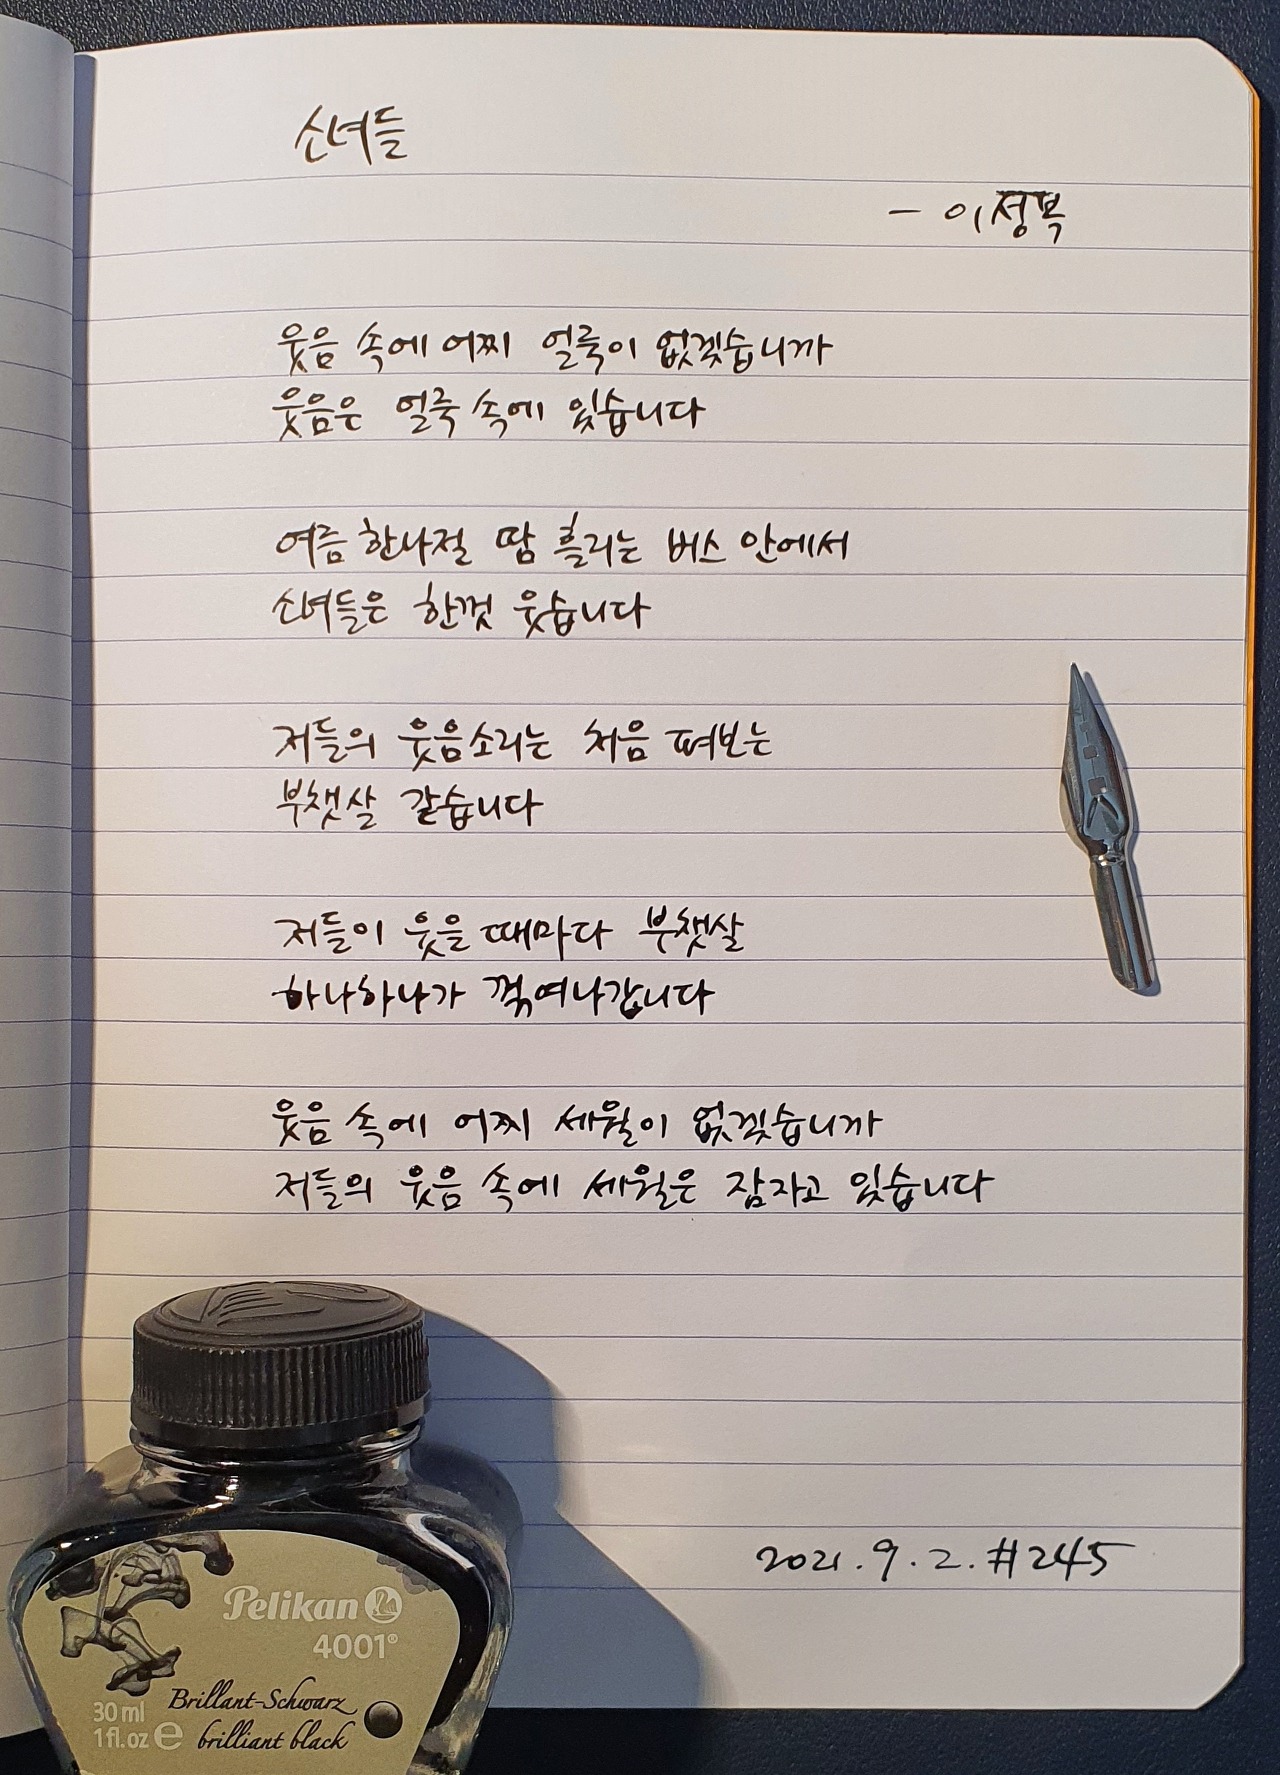 소녀들
- 이정복
웃음 속에 어찌 얼룩이 없겠습니까
웃음은 얼룩 속에 있습니다
여름 한나절 땀 흘리는 버스 안에서
소녀들은 한껏 웃습니다
저들의 웃음소리는 처음 펴보는
부챗살 같습니다
저들이 웃을 때마다 부챗살
하나하나가 꺾여나갑니다
웃음 속에 어찌 세월이 없겠습니까
저들의 웃음 속에 세월은 잠자고 있습니다
2021.9.2.#245
Pelikan
4001®
Brillant-Schwarz
brilliant black
30 ml
1 fl. oz e